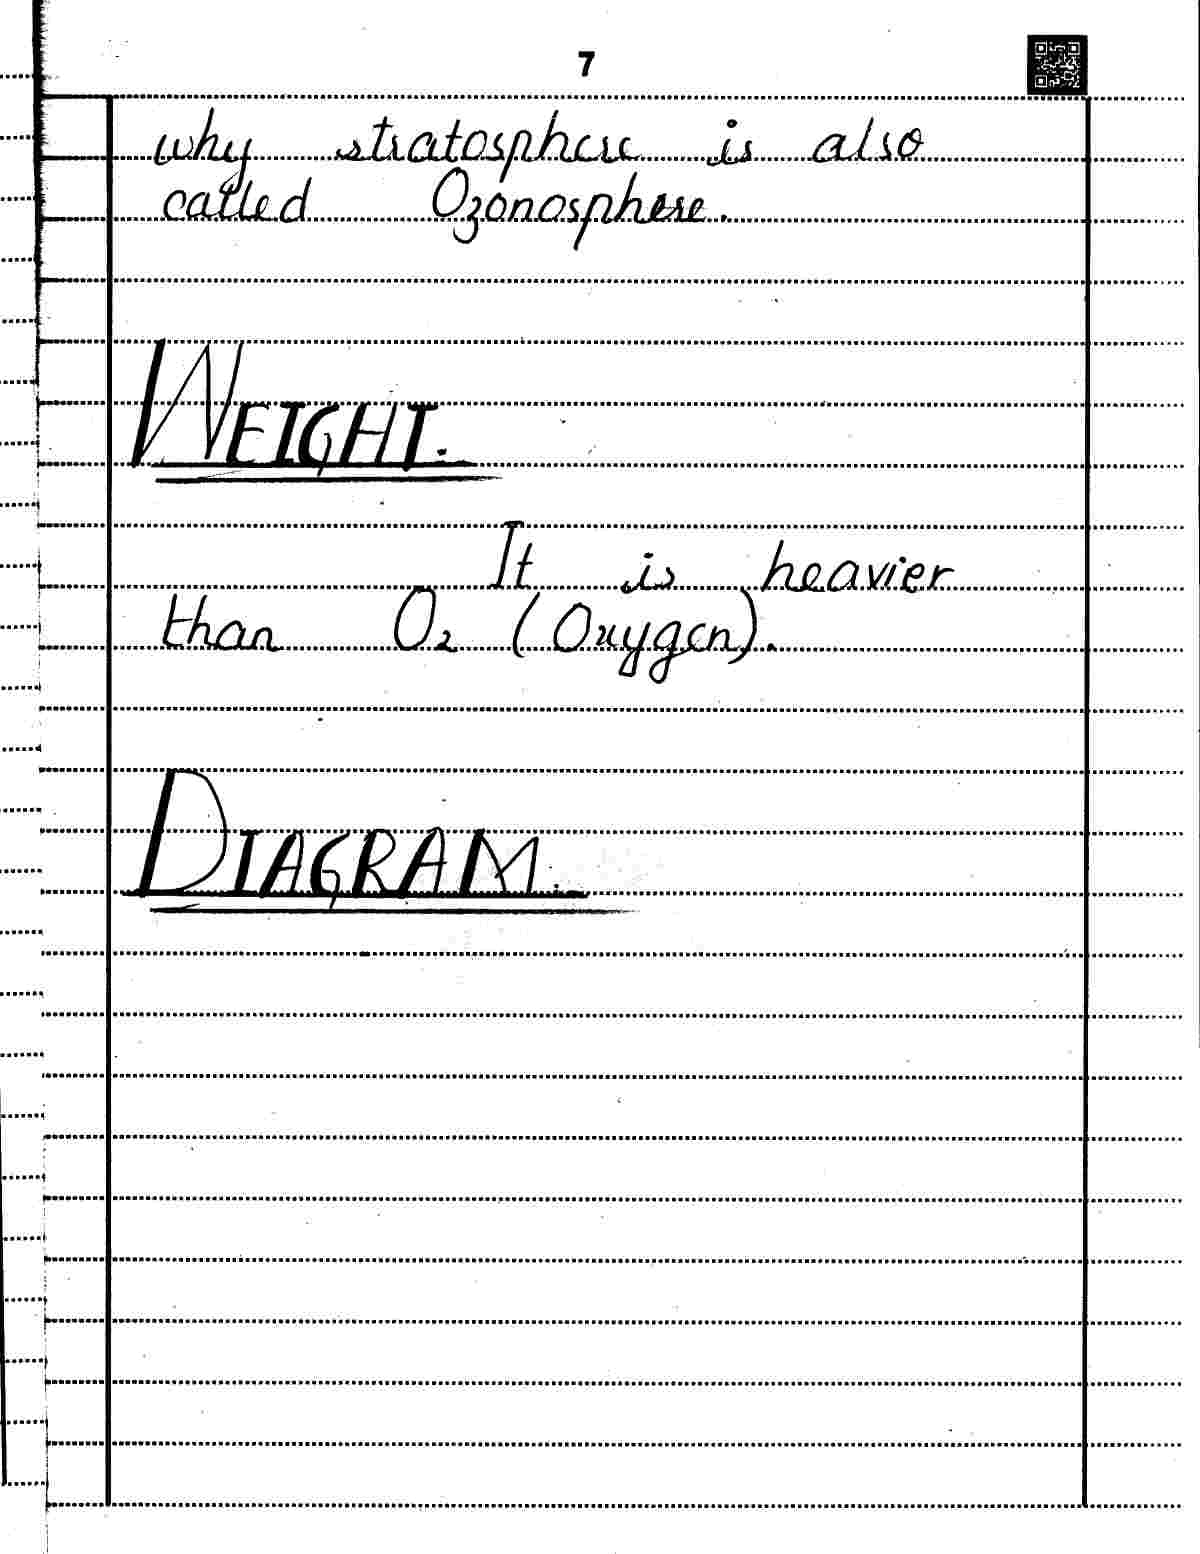 7
why stratosphere is also
called Ozonosphere.
WEIGHT.
It is heavier
than O₂ (Oxygen).
DIAGRAM.